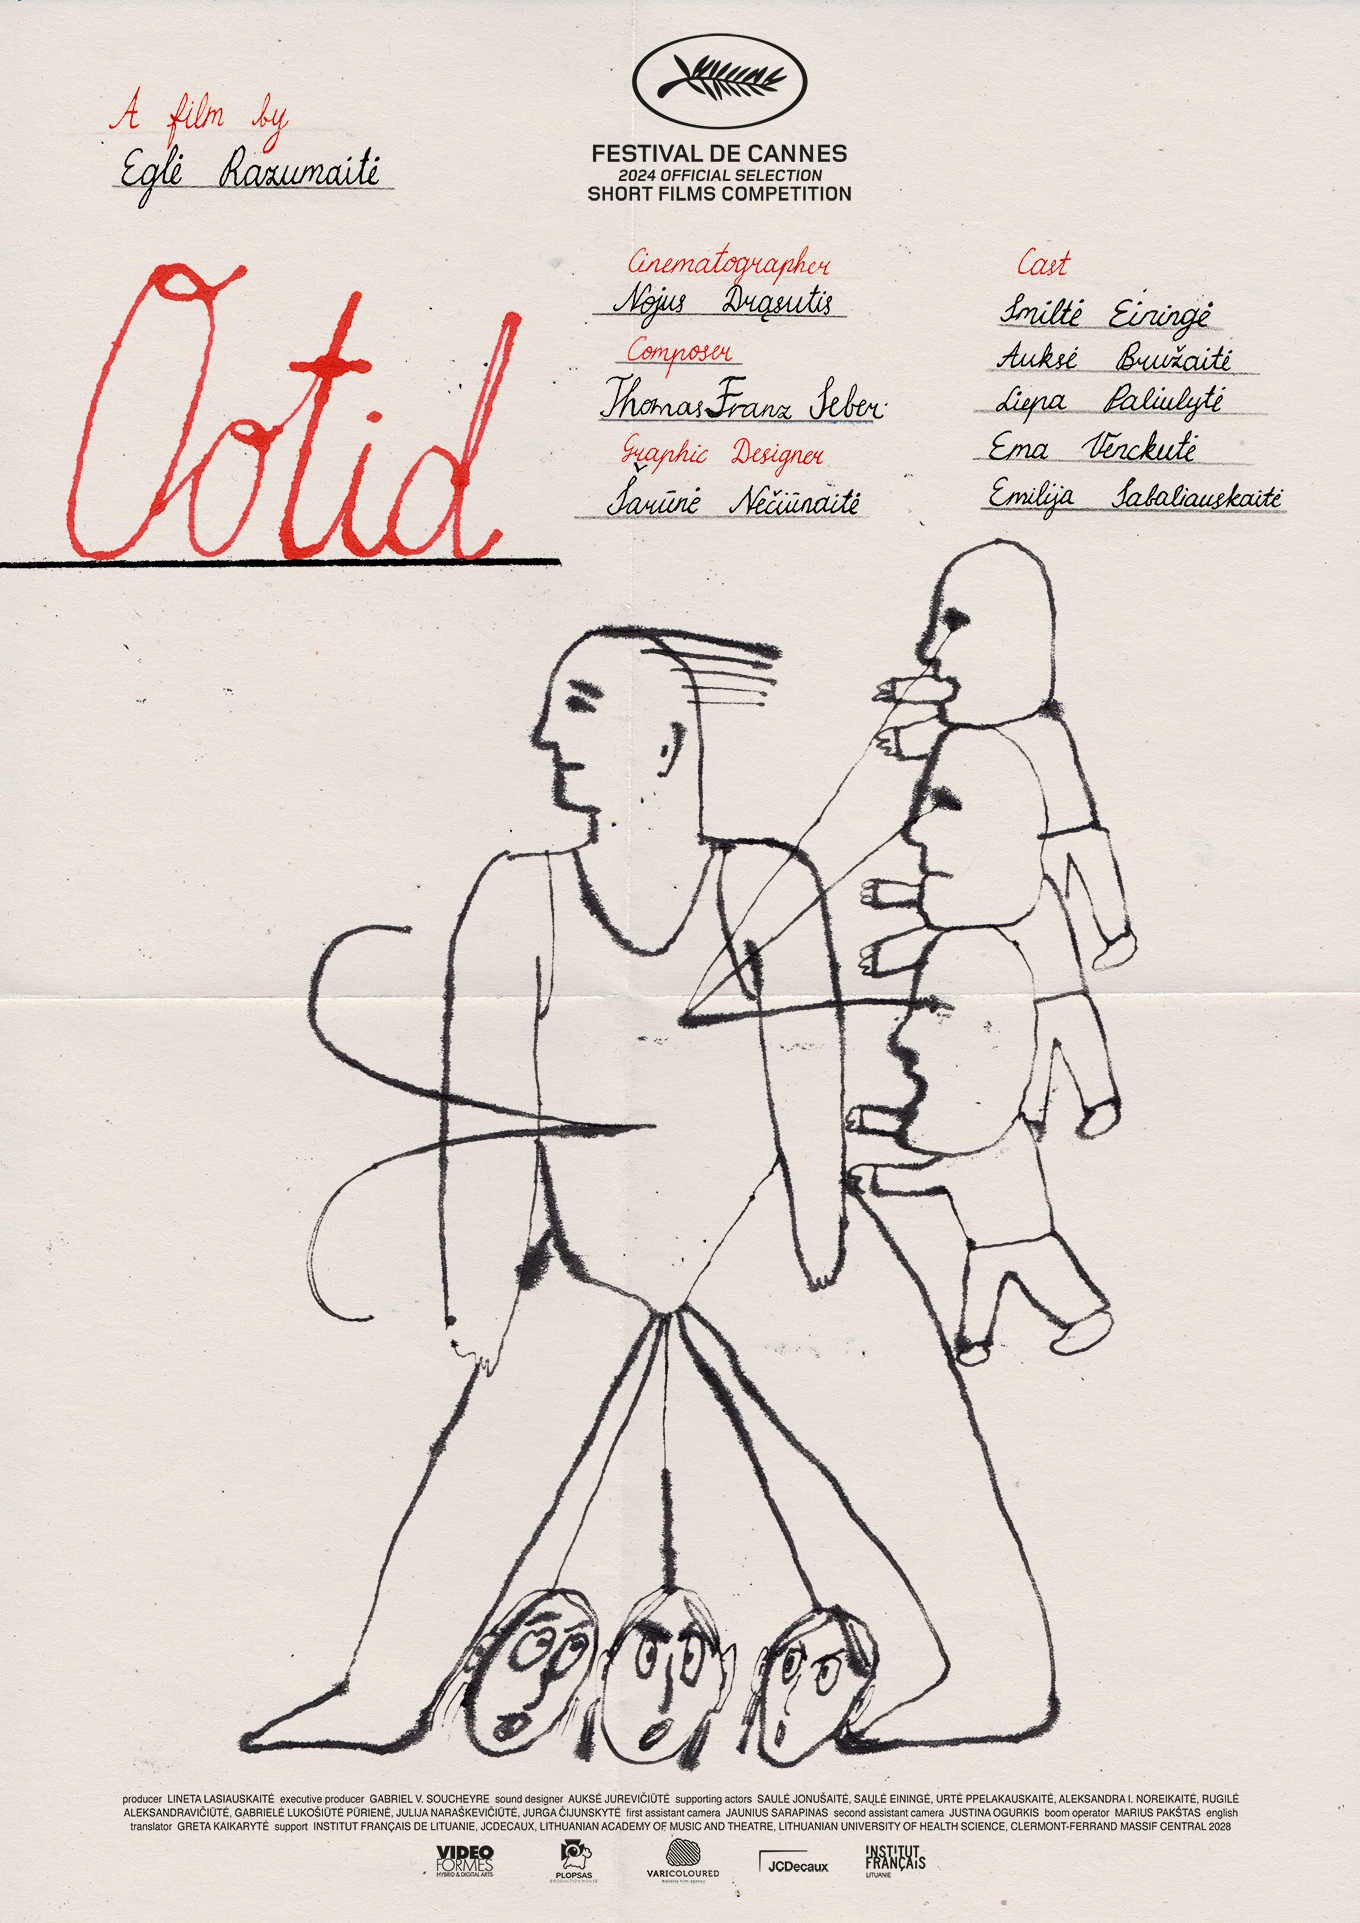 A film by
Eglė Razumaitė
FESTIVAL DE CANNES
2024 OFFICIAL SELECTION
SHORT FILMS COMPETITION
Ootid
Cinematographer
Nojus Drąsutis
Composer
Thomas Franz Seber
Graphic Designer
Šarūnė Nečiūnaitė
Cast
Smiltė Einingė
Auksė Bružaitė
Liepa Paliulytė
Ema Verckutė
Emilija Sabaliauskaitė
producer LINETA LASIAUSKAITĖ executive producer GABRIEL V. SOUCHEYRE sound designer AUKSĖ JUREVIČIŪTĖ supporting actors SAULĖ JONUŠAITĖ, SAULĖ EININGĖ, URTĖ PPELAKAUSKAITĖ, ALEKSANDRA I. NOREIKAITĖ, RUGILĖ
ALEKSANDRAVIČIŪTĖ, GABRIELĖ LUKOŠIŪTĖ PŪRIENĖ, JULIJA NARAŠKEVIČIŪTĖ, JURGA ČIJUNSKYTĖ first assistant camera JAUNIUS SARAPINAS second assistant camera JUSTINA OGURKIS boom operator MARIUS PAKŠTAS english
translator GRETA KAIKARYTĖ support INSTITUT FRANÇAIS DE LITUANIE, JCDECAUX, LITHUANIAN ACADEMY OF MUSIC AND THEATRE, LITHUANIAN UNIVERSITY OF HEALTH SCIENCE, CLERMONT-FERRAND MASSIF CENTRAL 2028
VIDEO
FORMES
HYBRID & DIGITAL ARTS
PLOPSAS
PRODUCTION HOUSE
VARICOLOURED
JCDecaux
INSTITUT
FRANÇAIS
LITUANIE